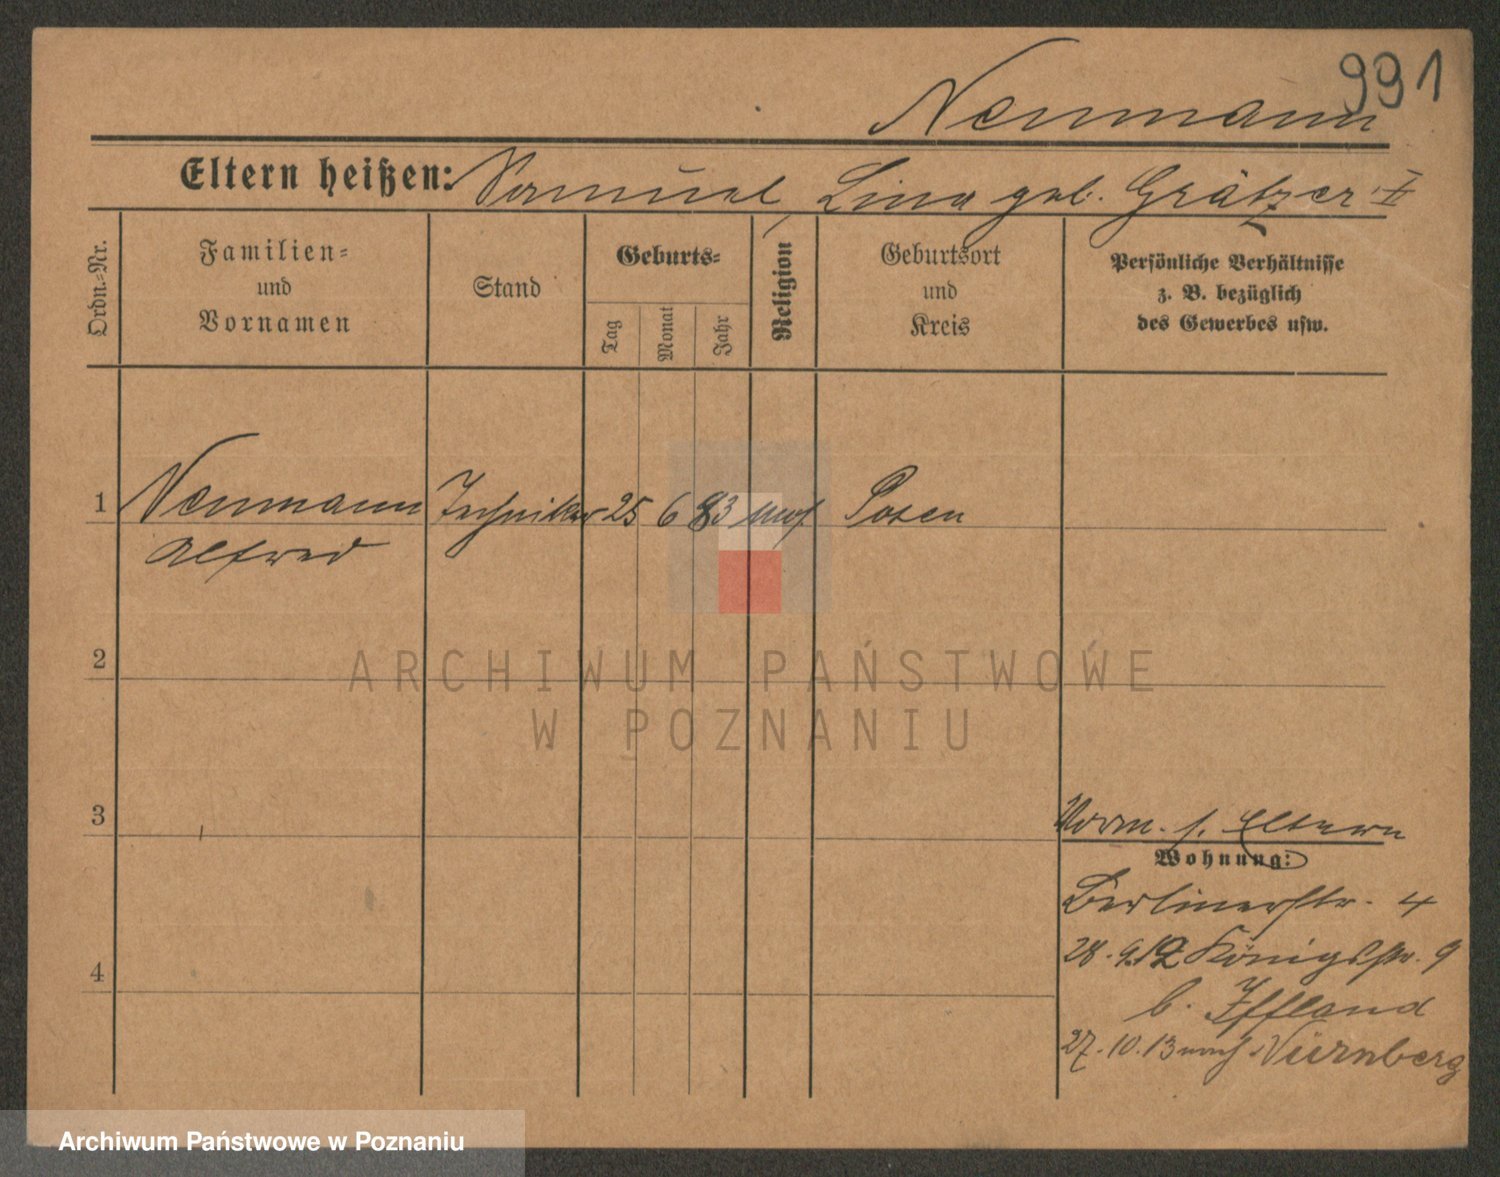 991
Neumann
Eltern heißen: Samuel, Lina geb. Grätzer II
Ordn.-Nr.
Familien-
und
Vornamen
Stand
Geburts-
Tag
Monat
Jahr
Religion
Geburtsort
und
Kreis
Persönliche Verhältnisse
z. B. bezüglich
des Gewerbes usw.
1 Neumann Techniker 25 6 83 mos. Posen
Alfred
2
ARCHIWUM PAŃSTWOWE
W POZNANIU
3
Vorm. s. Eltern
Wohnung:
Berlinerstr. 4
28.9.12 Königstr. 9
4
b. Iffland
27.10.13 nach Nürnberg
Archiwum Państwowe w Poznaniu